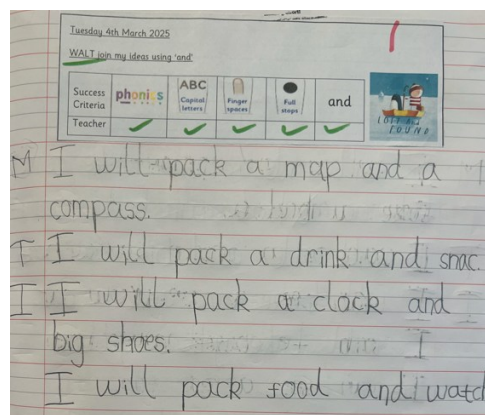 Tuesday 4th March 2025
WALT join my ideas using 'and'
Success Criteria phonics ABC Capital letters Finger spaces Full stops and
Teacher
LOST AND FOUND
M I will pack a map and a
compass.
T I will pack a drink and snac.
I I will pack a clock and
big shoes.
I will pack food and watch